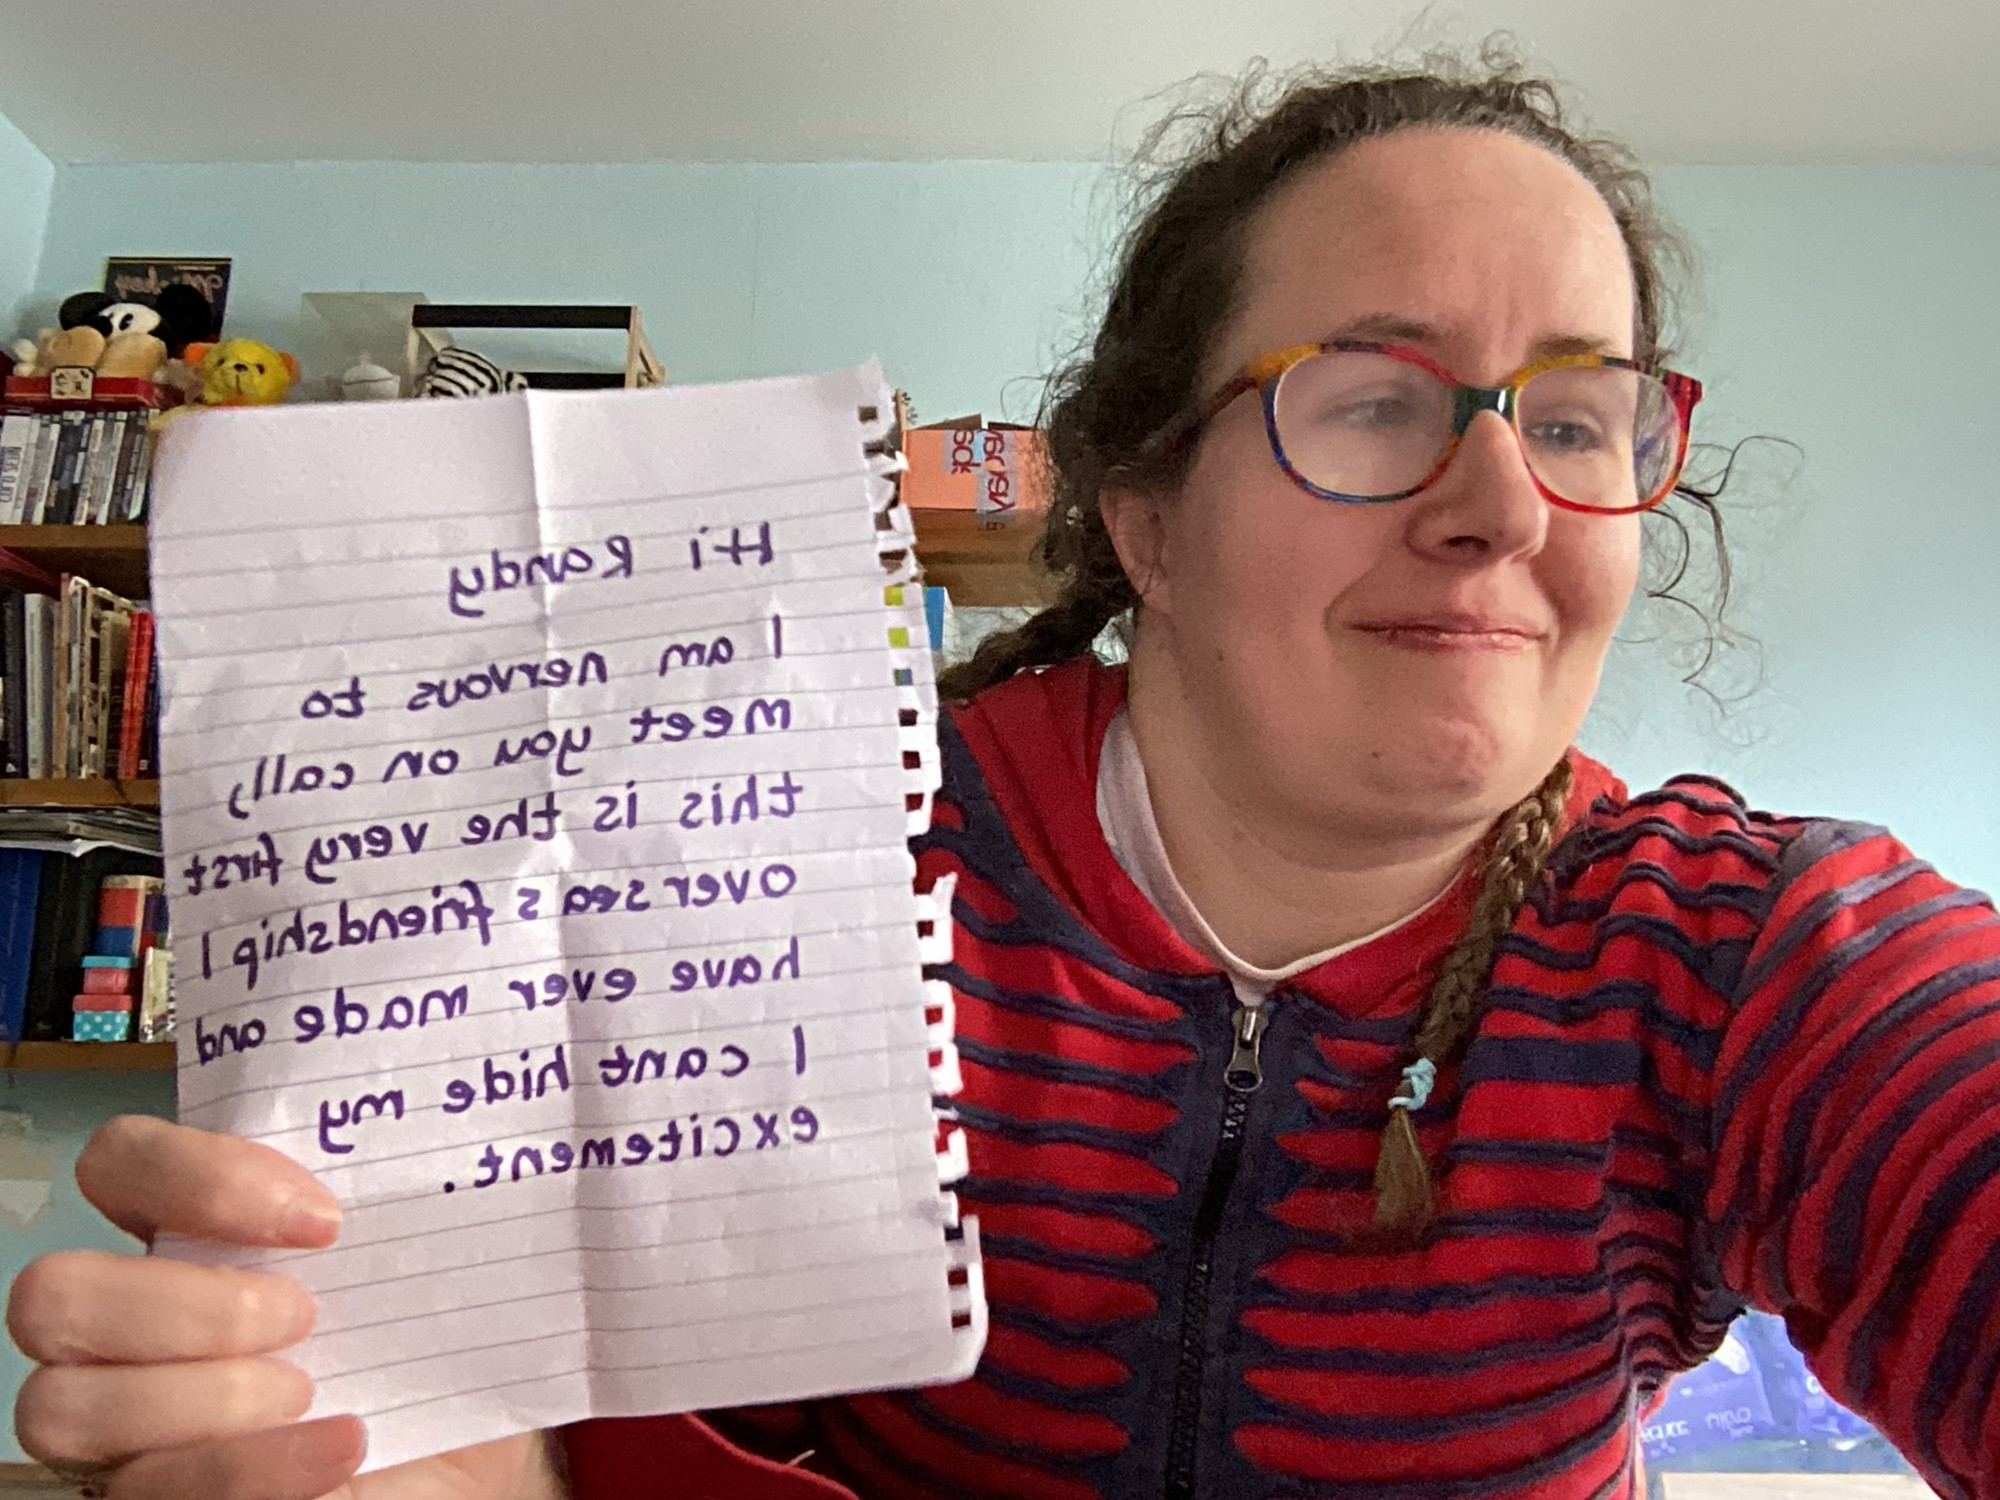 Hi Randy
I am nervous to
meet you on call,
this is the very first
overseas friendship I
have ever made and
I cant hide my
excitement.